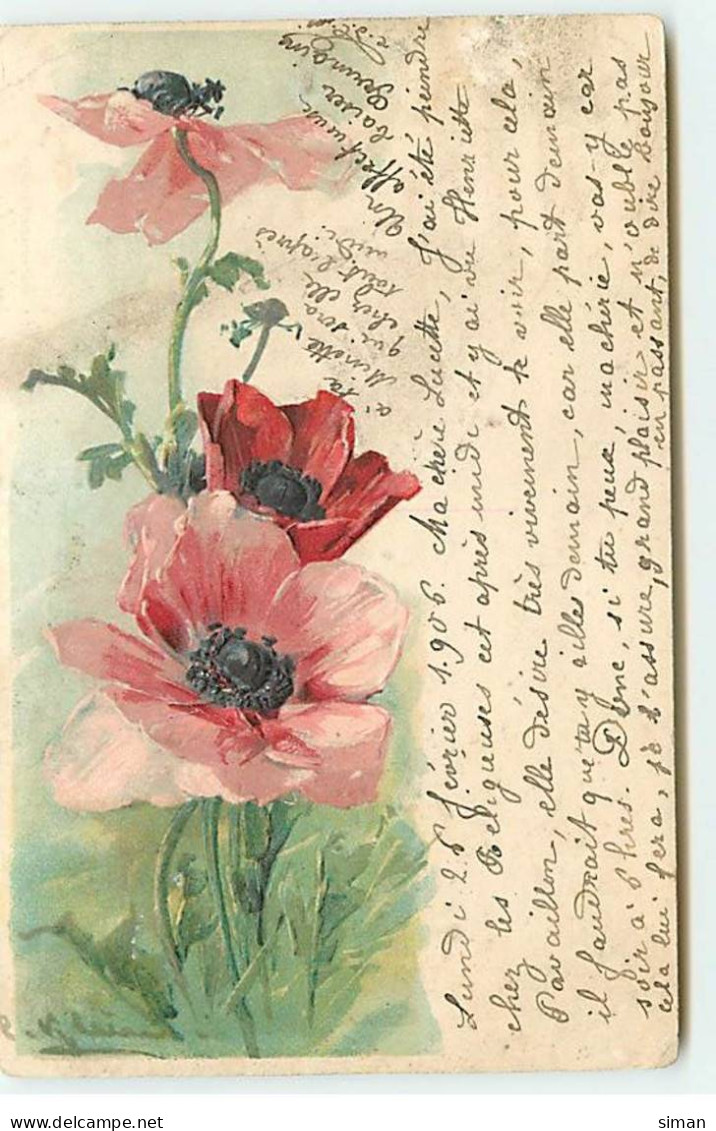 Lundi 26 février 1.906. Ma chère Lucette, J'ai été peindre
chez les Religieuses cet après midi et y ai vu Henriette
Pavaillon, elle désire très vivement te voir, pour cela,
il faudrait que tu y ailles demain, car elle part demain
soir à 6 hres. Donc, si tu peux, ma chérie, vas-y car
cela lui fera, je t'assure, grand plaisir et n'oublie pas
en passant, de dire bonjour
à ta
Minette
qui sera
chez elle
tout l'après
midi.
Un
affectueux
baiser
Germaine
C. Klein
siman